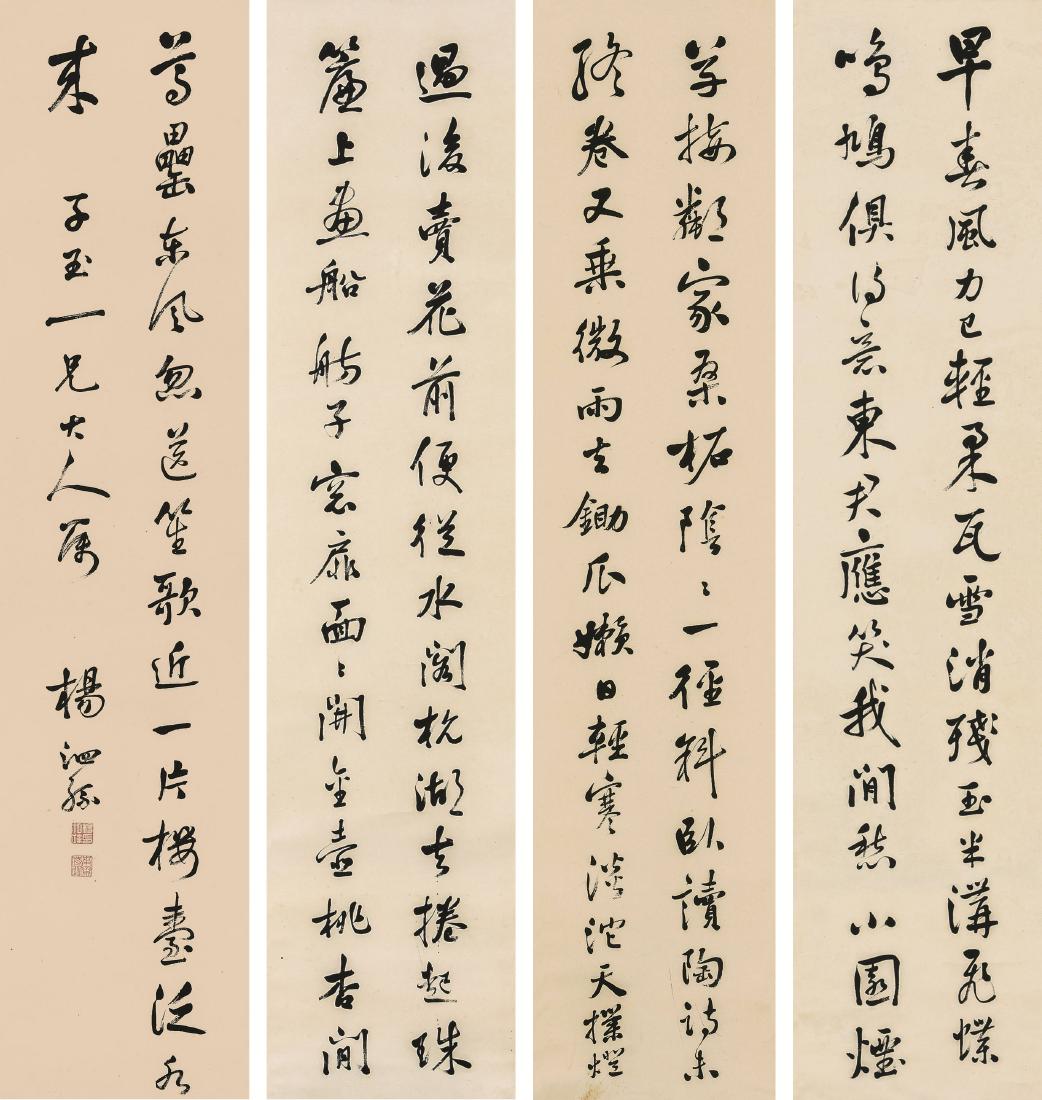 早春風力已輕柔瓦雪消殘玉半溝飛蝶
鳴鳩俱得意東君應笑我閒愁 小園煙
草接鄰家桑柘陰〻一徑斜臥讀陶詩未
終卷又乘微雨去鋤瓜 嫩日輕寒淡沲天撲燈
過後賣花前便從水閣杭湖去捲起珠
簾上畫船 舫子窓扉面〻開金壺桃杏間
尊罍東風忽送笙歌近一片樓臺泛水
來 子玉一兄大人屬 楊泗孫